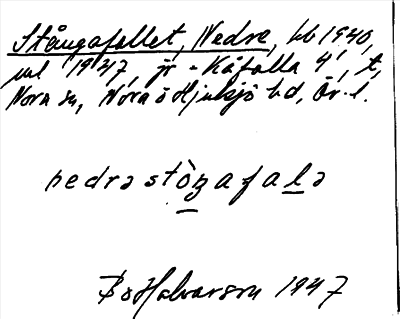 Stångafallet, Nedre, kb 1940,
jvl 1947, jr - Kåfalla 4', t,
Nora sn, Nora o Hjulsjö bd, Ör. l.
nedrə stòŋafalə
Bo Halvarson 1947